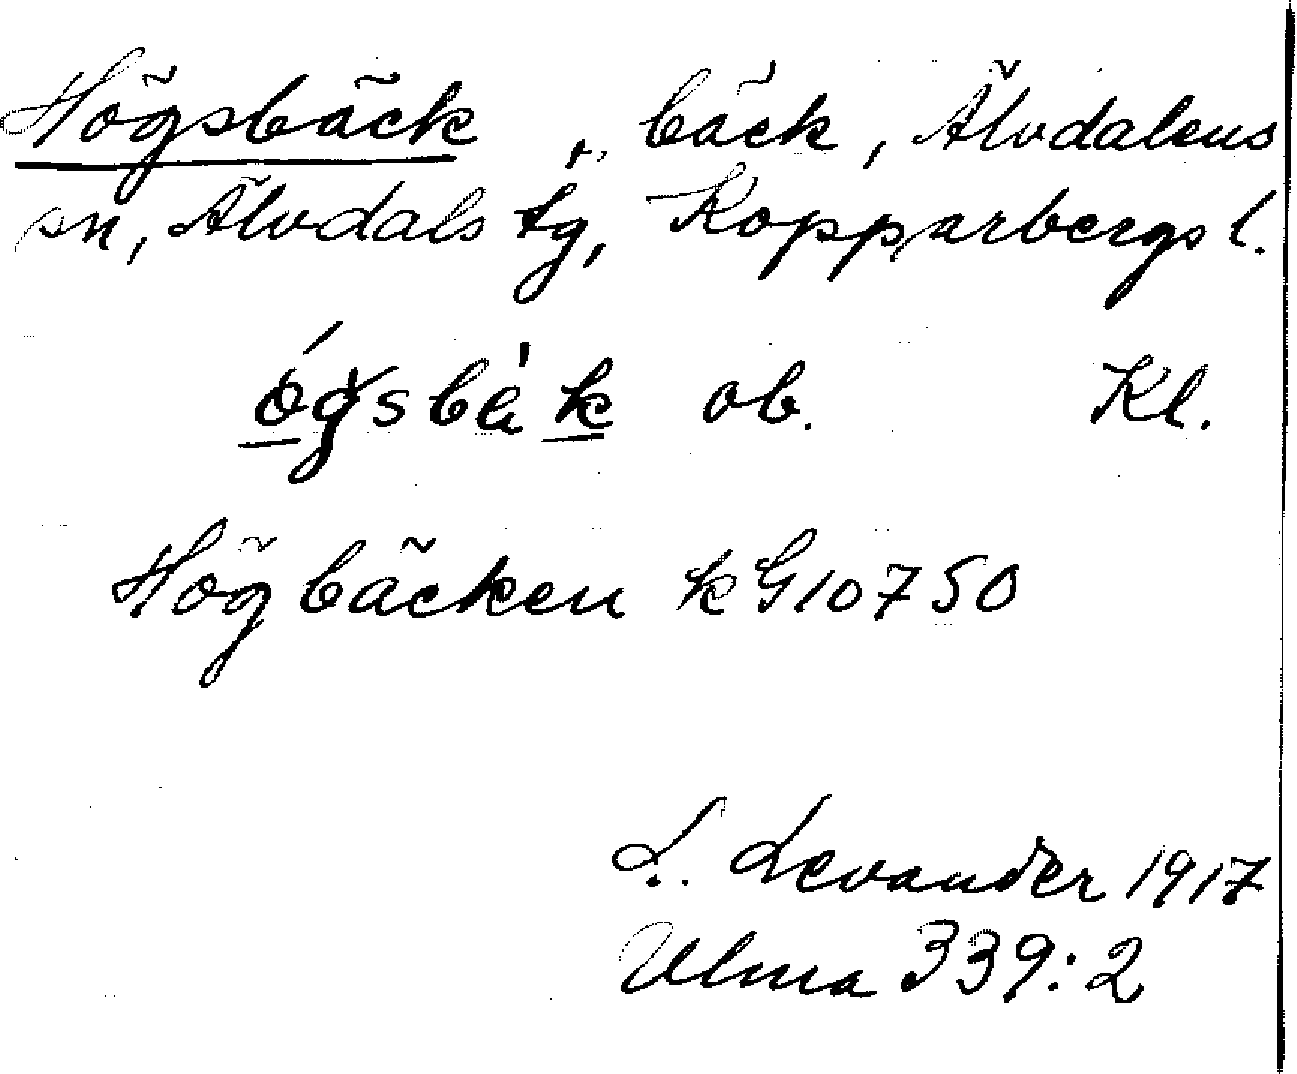 Högsbäck, bäck, Älvdalens
sn, Älvdals tg, Kopparbergs l.
ógsbäk ob. Kl.
Högbäcken kG10750
L. Levander 1917
Ulma 339:2